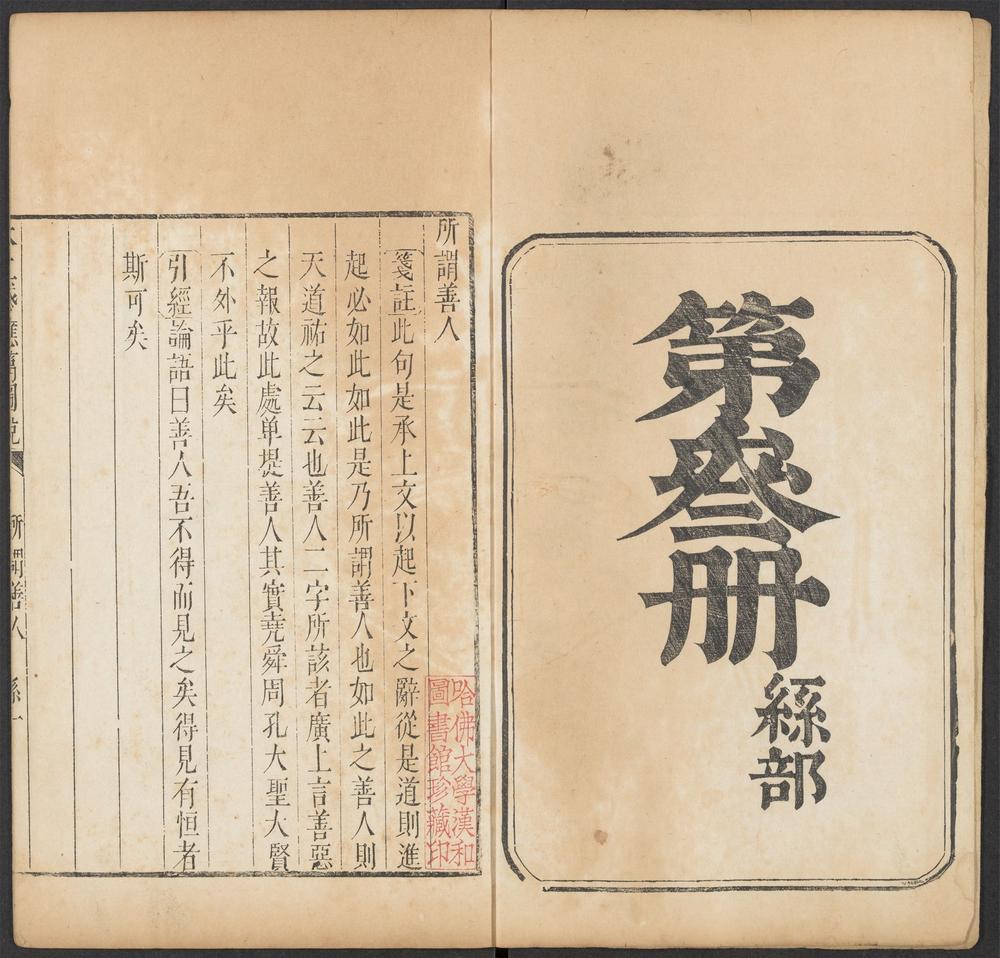 第叁册
絲部
所謂善人
箋註此句是承上文以起下文之辭從是道則進
起必如此如此是乃所謂善人也如此之善人則
天道祐之云云也善人二字所該者廣上言善惡
之報故此處单提善人其實堯舜周孔大聖大賢
不外乎此矣
引經論語曰善人吾不得而見之矣得見有恒者
斯可矣
所謂善人
絲一
哈佛大學漢和
圖書館珍藏印